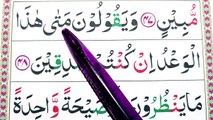 مُّبِيْنٍ ﴿۴۷﴾ وَيَقُوْلُوْنَ مَتٰى هٰذَا
الْوَعْدُ اِنْ كُنْتُمْ صٰدِقِيْنَ ﴿۴۸﴾
مَا يَنْظُرُوْنَ صَيْحَةً وَّاحِدَةً